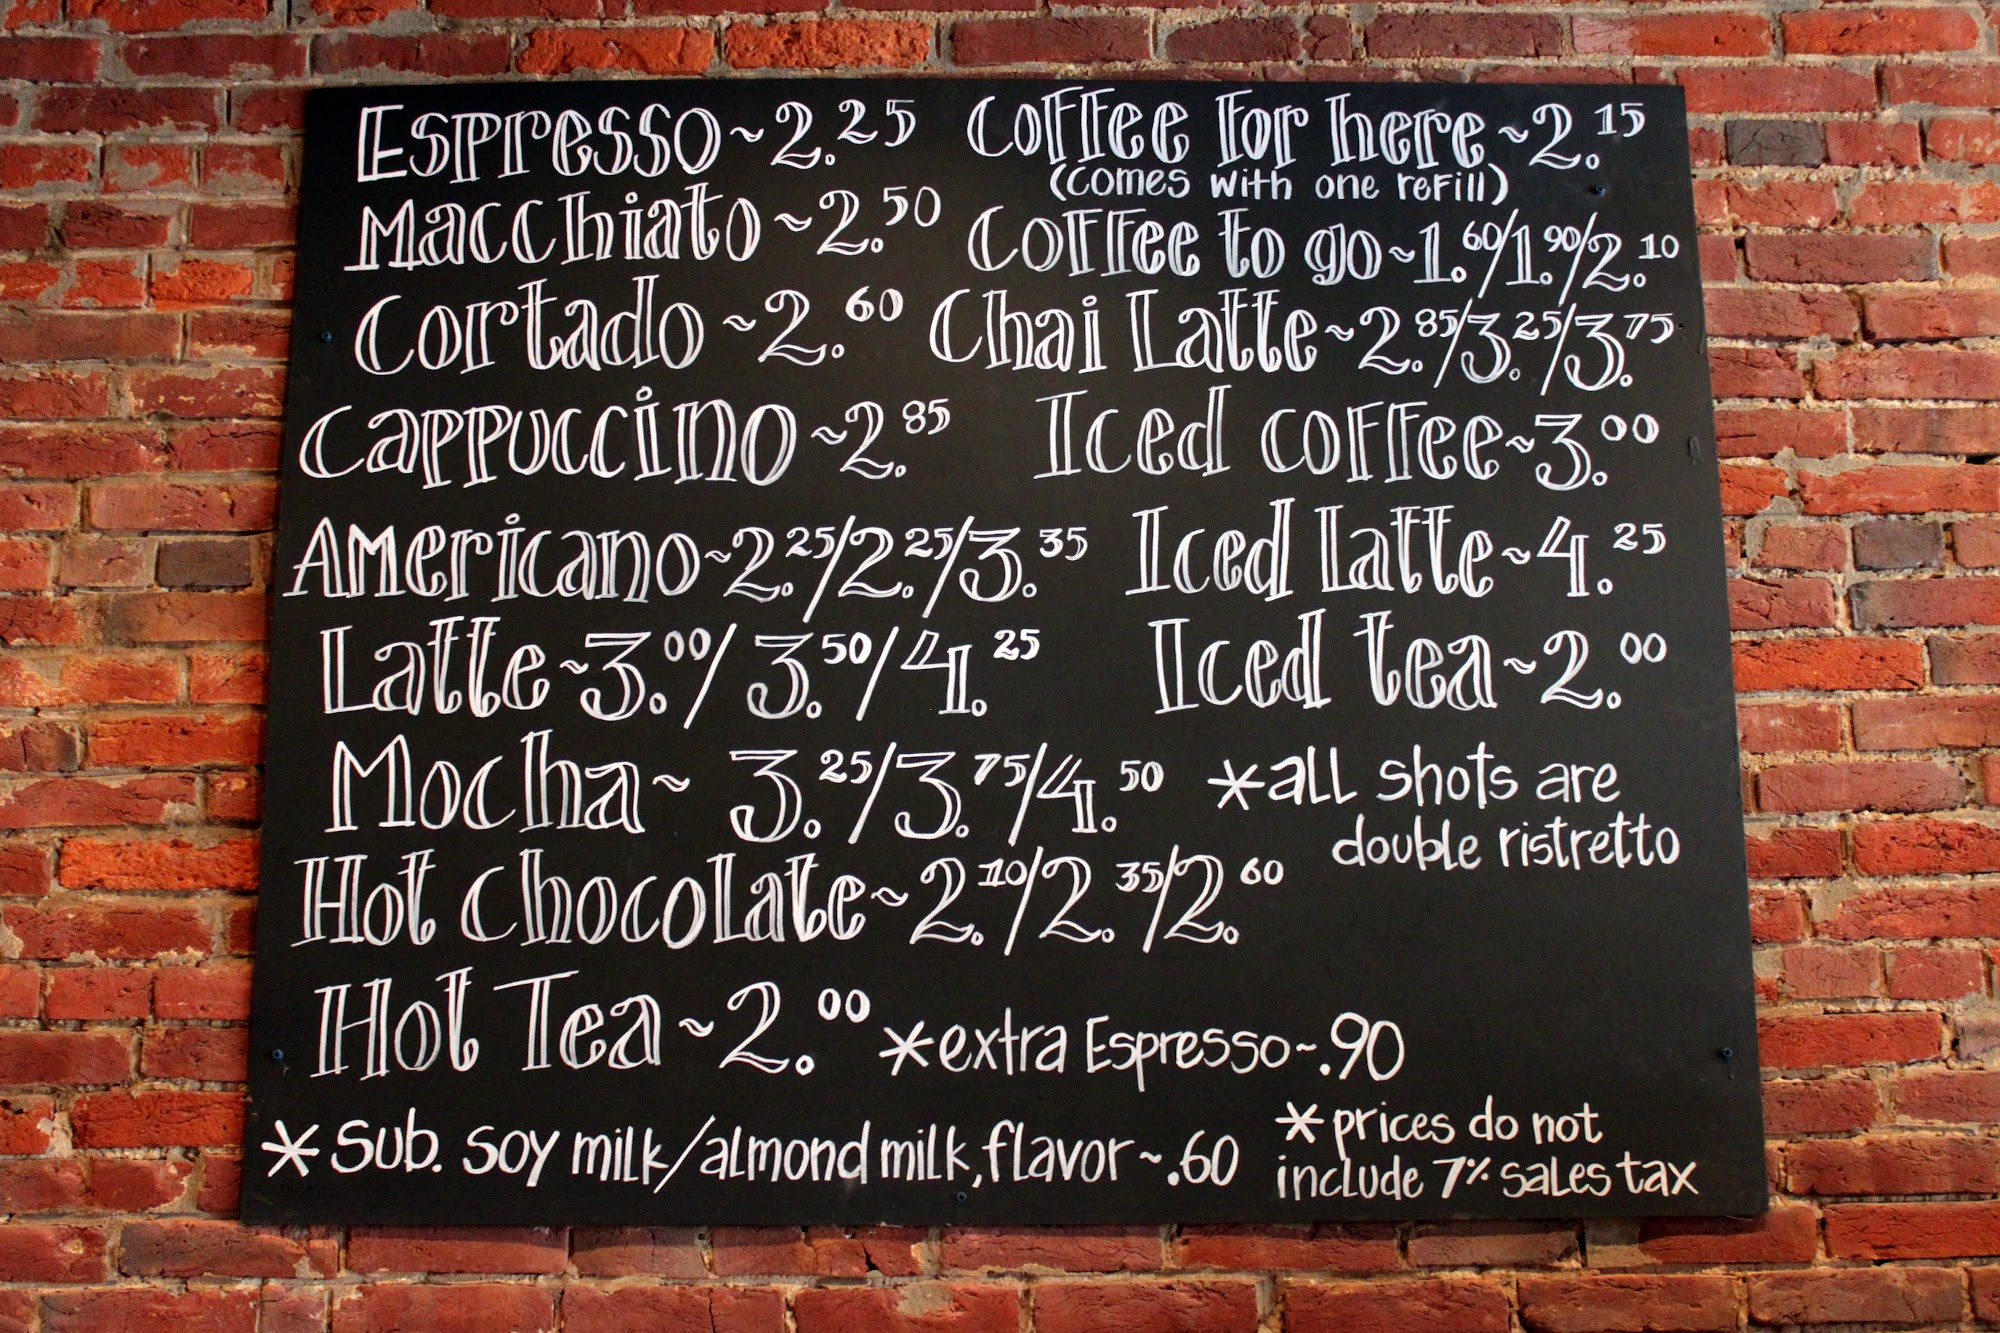 Espresso ~ 2.25
Macchiato ~ 2.50
Cortado ~ 2.60
Cappuccino ~ 2.85
Americano ~ 2.25/2.25/3.35
Latte ~ 3.00/3.50/4.25
Mocha ~ 3.25/3.75/4.50
Hot Chocolate ~ 2.10/2.35/2.60
Hot Tea ~ 2.00
Coffee for here ~ 2.15
(comes with one refill)
Coffee to go ~ 1.60/1.90/2.10
Chai Latte ~ 2.85/3.25/3.75
Iced coffee ~ 3.00
Iced latte ~ 4.25
Iced tea ~ 2.00
*all shots are
double ristretto
*extra Espresso ~ .90
*Sub. soy milk/almond milk, flavor ~ .60
*prices do not
include 7% sales tax